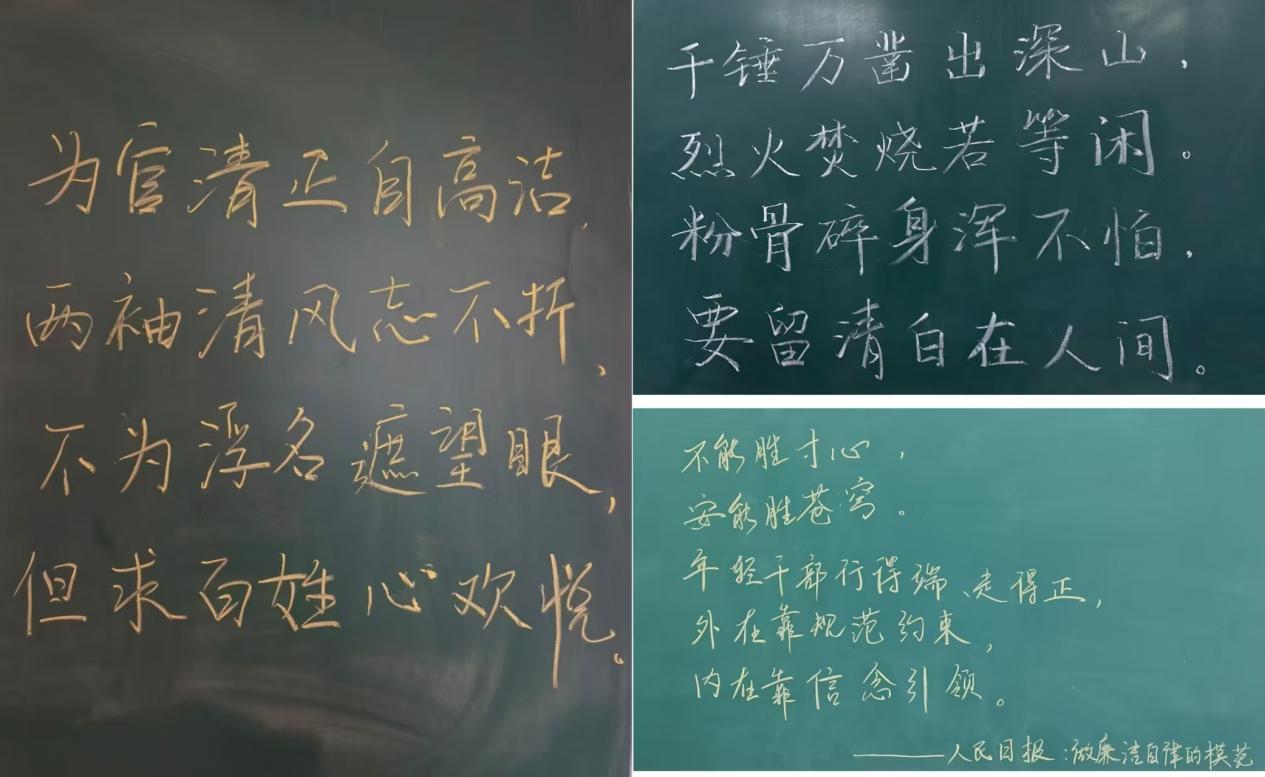 为官清正自高洁,
两袖清风志不折、
不为浮名遮望眼,
但求百姓心欢悦。
千锤万凿出深山,
烈火焚烧若等闲。
粉骨碎身浑不怕,
要留清白在人间。
不能胜寸心,
安能胜苍穹。
年轻干部行得端、走得正,
外在靠规范约束,
内在靠信念引领。
——人民日报:做廉洁自律的模范